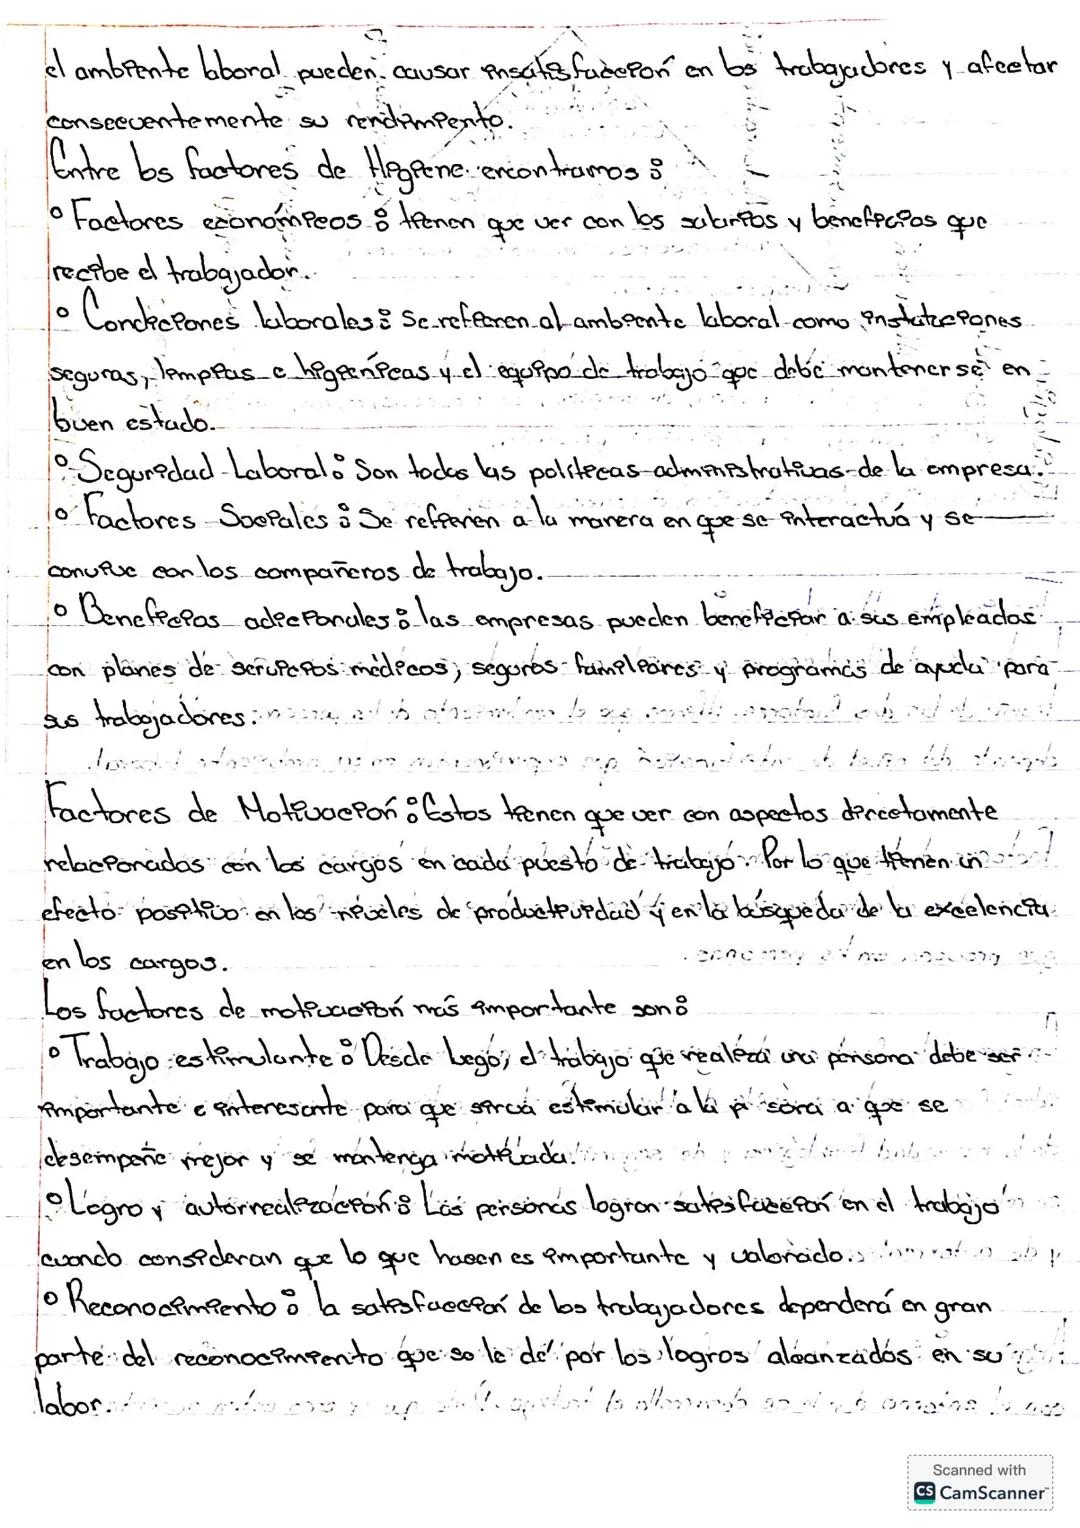 el ambiente laboral pueden causar insatisfacción en los trabajadores y afectar
consecuentemente su rendimiento.
Entre los factores de Higiene encontramos:
° Factores económicos: tienen que ver con los salarios y beneficios que
recibe el trabajador.
° Condiciones laborales: Se refieren al ambiente laboral como instalaciones
seguras, limpias e higiénicas y el equipo de trabajo que debe mantenerse en
buen estado.
° Seguridad Laboral: Son todas las políticas administrativas de la empresa.
° Factores Sociales: Se refieren a la manera en que se interactuá y se
convive con los compañeros de trabajo.
° Beneficios adicionales: las empresas pueden beneficiar a sus empleados
con planes de servicios médicos, seguros familiares y programas de ayuda para
sus trabajadores.
Factores de Motivación: Estos tienen que ver con aspectos directamente
relacionados con los cargos en cada puesto de trabajo. Por lo que tienen un
efecto positivo en los niveles de productividad y en la búsqueda de la excelencia
en los cargos.
Los factores de motivación más importante son:
° Trabajo estimulante: Desde luego, el trabajo que realiza una persona debe ser
importante e interesante para que sirva estimular a la a que se
desempeñe mejor y se mantenga motivada.
° Logro y autorrealización: Las personas logran satisfacción en el trabajo
cuando consideran que lo que hacen es importante y valorado.
° Reconocimiento: la satisfacción de los trabajadores dependerá en gran
parte del reconocimiento que se le dé por los logros alcanzados en su
labor.
Scanned with
CS CamScanner